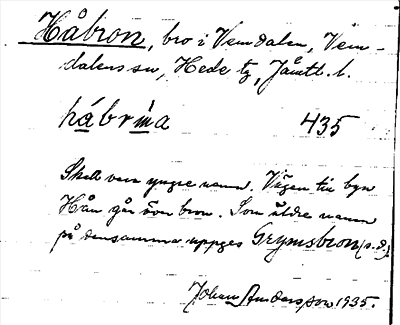 Håbron, bro i Vemdalen, Vem-
dalens sn, Hede tg, Jämtl. l.
hábrm̀a 435
Skall vara yngre namn. Vägen till byn
Hån går över bron. Som äldre namn
på densamma uppges Grymsbron (s.d.)
Johan Andersson 1935.